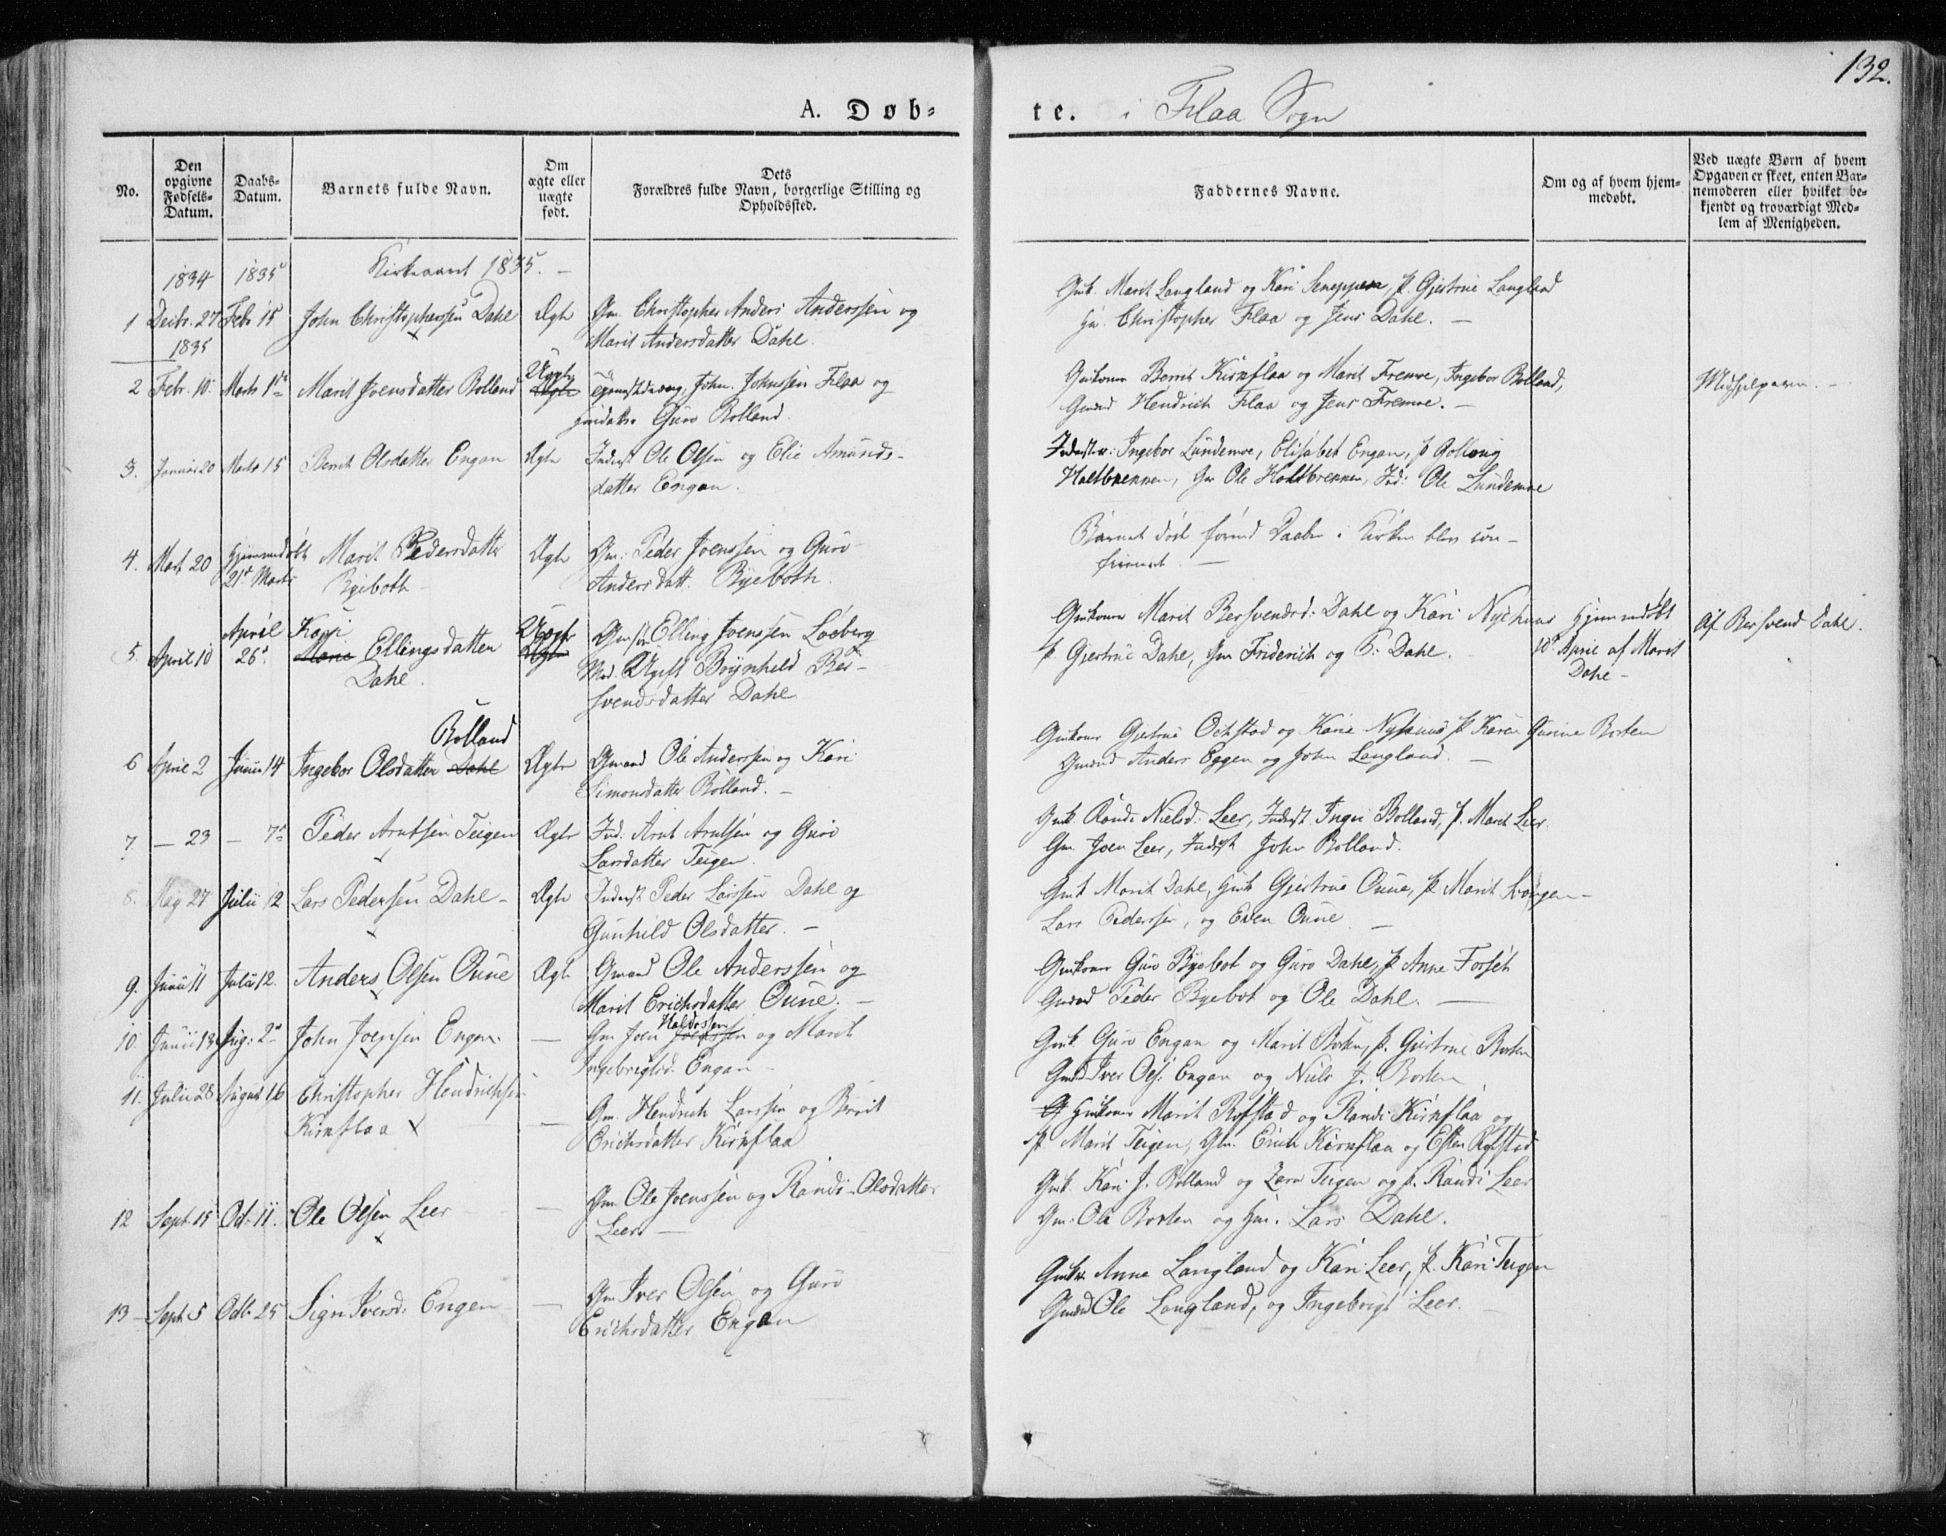 132.
A. Døb-
te. i Flaa Sogn
No.
Den opgivne Fødsels-Datum.
Daabs-Datum.
Barnets fulde Navn.
Om ægte eller uægte født.
Dets Forældres fulde Navn, borgerlige Stilling og Opholdssted.
Faddernes Navne.
Om og af hvem hjem-medøbt.
Ved uægte Børn af hvem Opgaven er skeet, enten Bar-nemoderen eller hvilket be-kjendt og troværdigt Med-lem af Menigheden.
1834 1835 Kirkeaaret 1835. —
1 Decbr. 27 Febr 15 John Christophersen Dahl Ægte Gm. Christopher Anders Anderssen og
1835 Marit Andersdatter Dahl.
Gmk. Marit Langland og Kari, P. Gjertrue Langland
Gm. Christopher Flaa og Jens Dahl. —
2 Febr. 10. Marts 1ste Marit Joensdatter Rolland Uægte Ægte John Johnssen Flaa og
Guro Rolland.
Gmkoner Berrit Kirkflaa og Marit Fremoe, Ingebor Rolland,
Gmænd Hendrich Flaa og Jens Fremoe. —
3. Januar 20 Marts 15 Berit Olsdatter Engan Ægte Inderst Ole Olsen og Elie Amunds-
datter Engan.
Inderstk: Ingebor Lundemoe, Elisabet Engan, P
Holtbrekken, Gm Ole Holtbrekken, Ind: Ole Lundemoe
4. Mart 20 Hjemmedøbt 21de Marts Marit Pedersdatter
Byeboth Ægte Gm: Peder Joenssen og Guro
Andersdatt. Byeboth.
Barnet døde førend Daaben i Kirken blev con-
firmeret. —
5. April 10 April 26de Kari Marie Ellingsdatter
Dahl. Uægte Ægte Elling Joenssen Loeberg
Ugift Brynhild Ber-
svendsdatter Dahl
Gmkoner Marit Bersvendsd: Dahl og Kari Nyehuus
P. Gjertrue Dahl, Gm Friderich og B: Dahl.
Hjemmedøbt
10de April af Marit
Dahl —
Af Bersvend Dahl.
6 April 2 Junii 14 Ingebor Olsdatter Dahl Rolland Ægte Gmand Ole Anderssen og Kari
Simonsdatter Rolland. —
Gmkoner Gjertrue Ochstad og Karie Nyhuus P. Karen Gurine Borten
Gmænd Anders Eggen og John Langland. —
7 — 23 — 7de Peder Arntsen Teigen Ægte Ind: Arnt Arntsen og Guro
Larsdatter Teigen.
Gmk Randi Nielsd: Leer, Inderst Inger Rolland, P. Marit Leer.
Gm. Joen Leer, Inderst John Rolland.
8. Maj 27 Julii 12 Lars Pedersen Dahl — Ægte Inderst Peder Larssen Dahl og
Gunhild Olsdatter. —
Gmk Marit Dahl, Gmk Gjertrue Oune, P. Marit
Lars Pederssen, og Even Oune —
9. Junii 11 Julii 12. Anders Olsen Oune Ægte Gmand Ole Anderssen og
Marit Erichsdatter Oune. —
Gmkoner Guro Byebot og Guro Dahl, P. Anne Forset
Gmænd Peder Byebot og Ole Dahl. —
10. Junii 13 Aug: 2de John Joenssen Engan. — Gm Joen Haldossen Joenssen og Marit
Ingebrigtsd. Engan —
Gmk. Guro Engan og Marit, P. Gjertrue Borten
Gmænd Iver Ols: Engan og Niels J. Borten
11. Julii 28 August 16 Christopher Hendrichsen
Kirkflaa — Gm. Hendrich Larssen og Berit
Erichsdatter Kirkflaa
Gmkoner Marit Rofstad og Randi Kirkflaa og
P. Marit Teigen, Gm. Erich Kirkflaa og Esten Rofstad
12 Sept. 15 Oct. 11. Ole Olsen Leer — Gm. Ole Joenssen og Randi Olsdatter
Leer. —
Gmk. Kari J. Rolland og Teigen og P. Randi Leer
Gm: Ole Borten og Gm. Lars Dahl.
13 — Sept 5 Octb. 25 Sign Iversd: Engen — Gm Iver Olsen og Guro
Erichsdatter Engan
Gmkr Anna Langland og Kari Leer, P. Kari Teigen
Gmænd Ole Langland, og Ingebrigt Leer. —